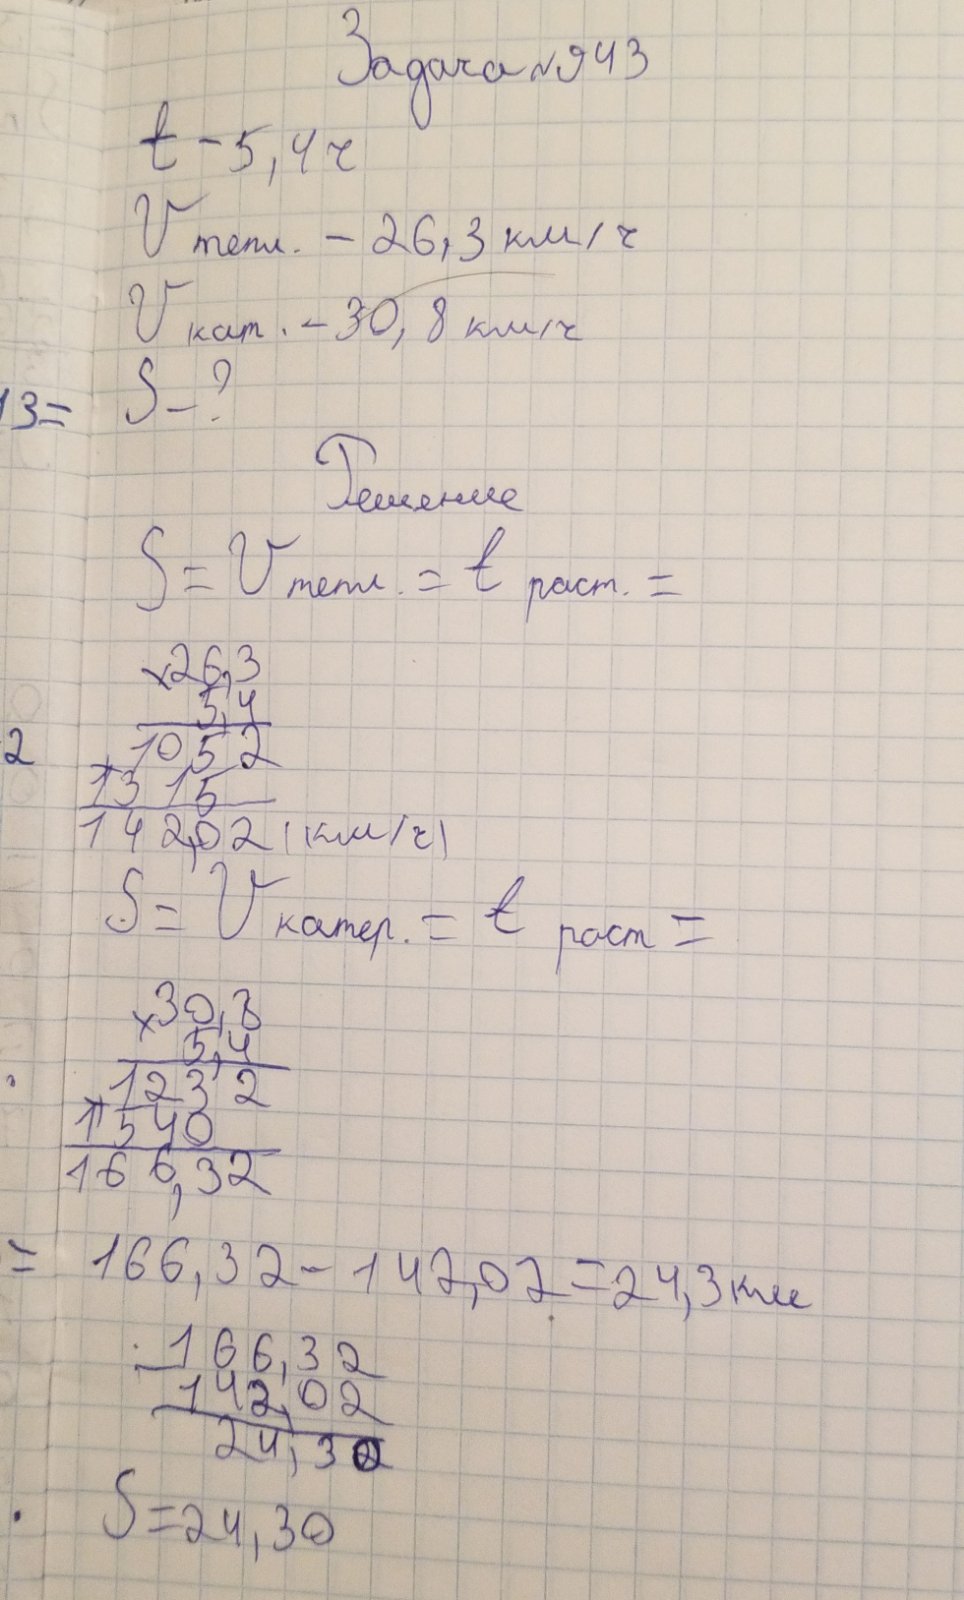 Задача №943
t - 5,4 ч
V тепл. - 26,3 км/ч
V кат. - 30,8 км/ч
S - ?
13=
Решение
S = V тепл. = t раст. =
×26,3
5,4
2
1052
+1315
142,02 (км/ч)
S = V катер. = t раст =
×30,8
5,4
1232
+1540
166,32
= 166,32 - 142,02 = 24,3 км
-166,32
142,02
24,30
S = 24,30